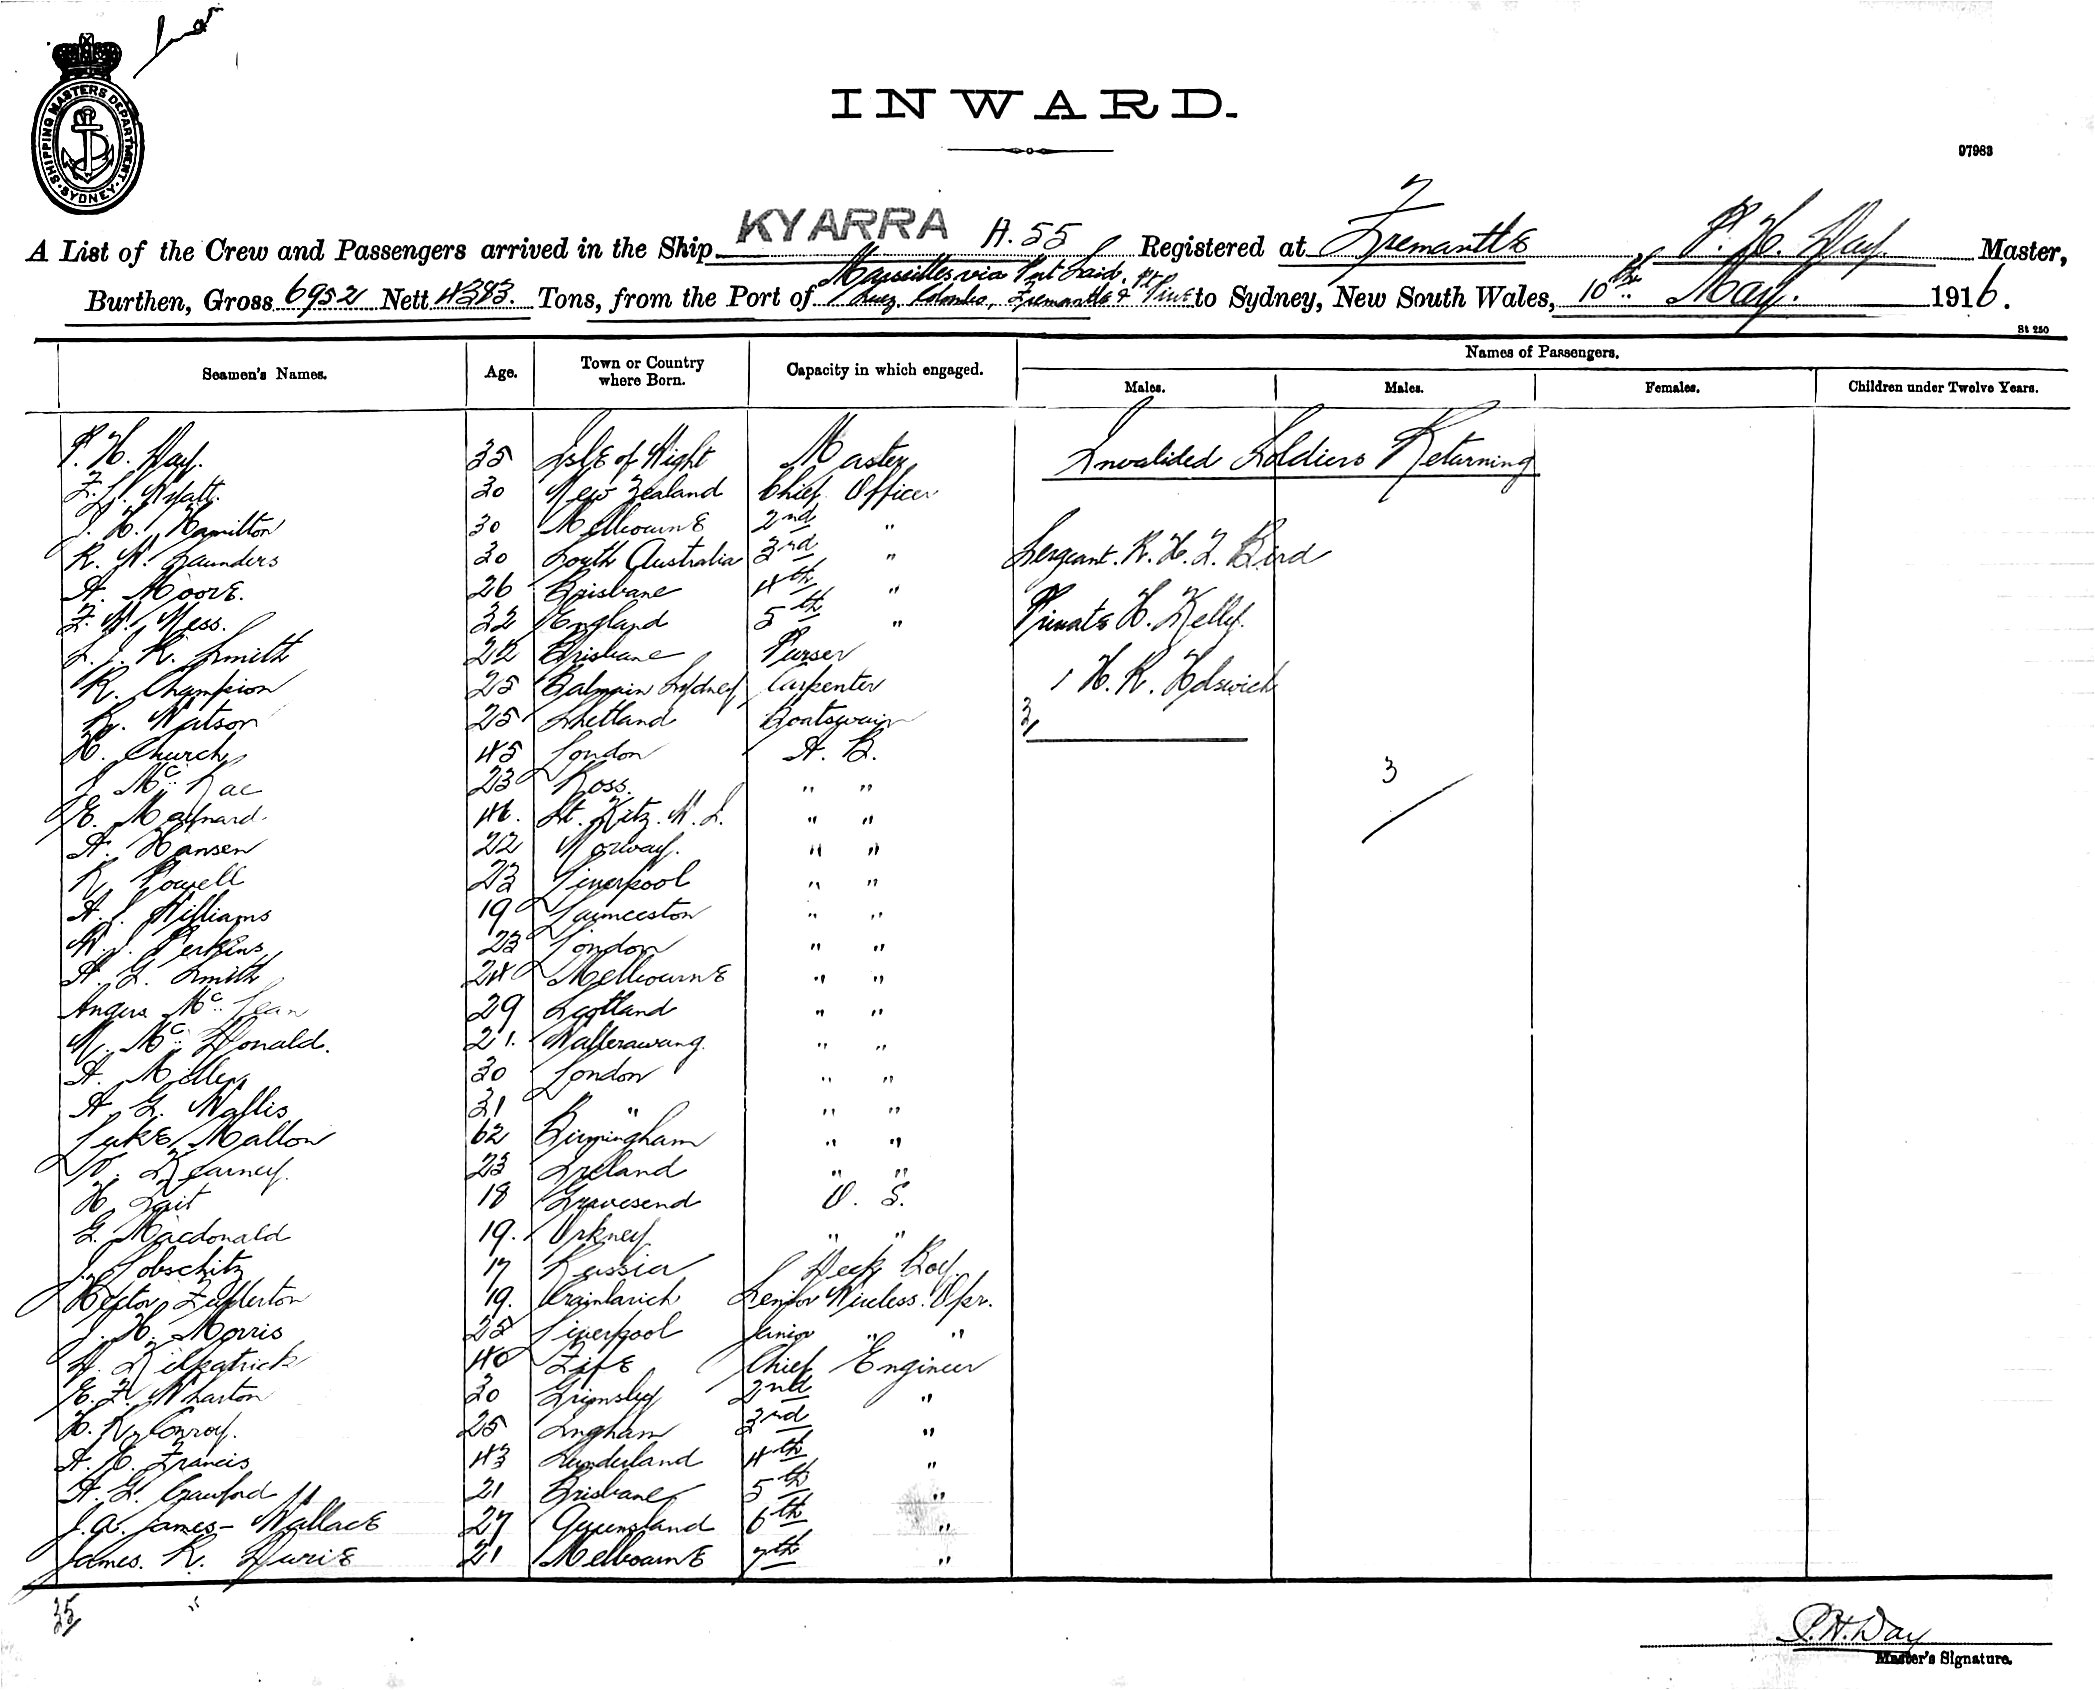 SHIPPING MASTERS DEPARTMENT · SYDNEY ·
INWARD.
97983
A List of the Crew and Passengers arrived in the Ship KYARRA A.55 Registered at Fremantle P. H. Day. Master,
Burthen, Gross 6952 Nett 4383. Tons, from the Port of Marseilles via Port Said, Suez, Colombo, Fremantle & Pt Pirie to Sydney, New South Wales, 10th May. 1916.
St 250
Seamen's Names. Age. Town or Country where Born. Capacity in which engaged. Names of Passengers.
Males. Males. Females. Children under Twelve Years.
P. H. Day. 35 Isle of Wight Master
Invalided Soldiers Returning
Wyatt. 30 New Zealand Chief Officer
J. H. Hamilton 30 Melbourne 2nd "
R. W. Saunders 30 South Australia 3rd "
Sergeant. R. H. F. Bird
A. Moore. 26 Brisbane 4th "
F. W. Mess. 32 England 5th "
Private H. Kelly.
L. J. R. Smith 22 Brisbane Purser
R. Champion 25 Balmain Sydney Carpenter
" H. R. Holswich
R. Watson 25 Shetland Boatswain
3
H. Church 45 London A. B.
J. McRae 23 Ross. " "
3
E. Maynard. 46. St. Kitz. W. I. " "
A. Hansen 22 Norway. " "
R. Powell 23 Liverpool " "
A. J. Williams 19 Launceston " "
W. J. Perkins 23 London " "
A. G. Smith 24 Melbourne " "
Angus McLean 29 Scotland " "
M. McDonald. 21. Wallerawang. " "
A. Miller 30 London " "
A. G. Wallis 31 " " "
Luke Mallon 62 Birmingham " "
P. Kearney. 23 Ireland " "
H. Tait 18 Gravesend O. S.
G. Macdonald 19. Orkney " "
J. Lobschitz 17 Russia Deck Boy.
Hector Fullerton 19. Crainlarich Senior Wireless. Opr.
J. H. Morris 25 Liverpool Junior " "
D. Kilpatrick 40 Fife Chief Engineer
E. F. Wharton 30 Grimsby 2nd "
H. R. Conroy. 25 Ingham 3rd "
A. H. Francis 43 Sunderland 4th "
A. G. Crawford 21 Brisbane 5th "
J. A. James-Wallace 27 Queensland 6th "
James. R. Durie 21 Melbourne 7th "
35
P. H. Day
Master's Signature.